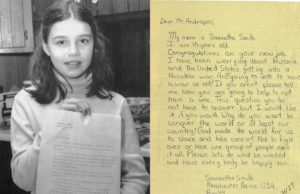 Dear Mr. Andropov,
My name is Samantha Smith.
I am 10 years old.
Congratulations on your new job.
I have been worrying about Russia
and The United States getting into a
nuclear war. Are you going to vote to have a
war or not? If you aren't please tell
me how you are going to help to not
have a war. This question you do
not have to answer but I would like
it if you would. Why do you want to
conquer the world or at least our
country. God made the world for us
to share and take care of. Not to fight
over or have one group of people own
it all. Please lets do what he wanted
and have every body be happy too.
Samantha Smith
Manchester Maine U.S.A.